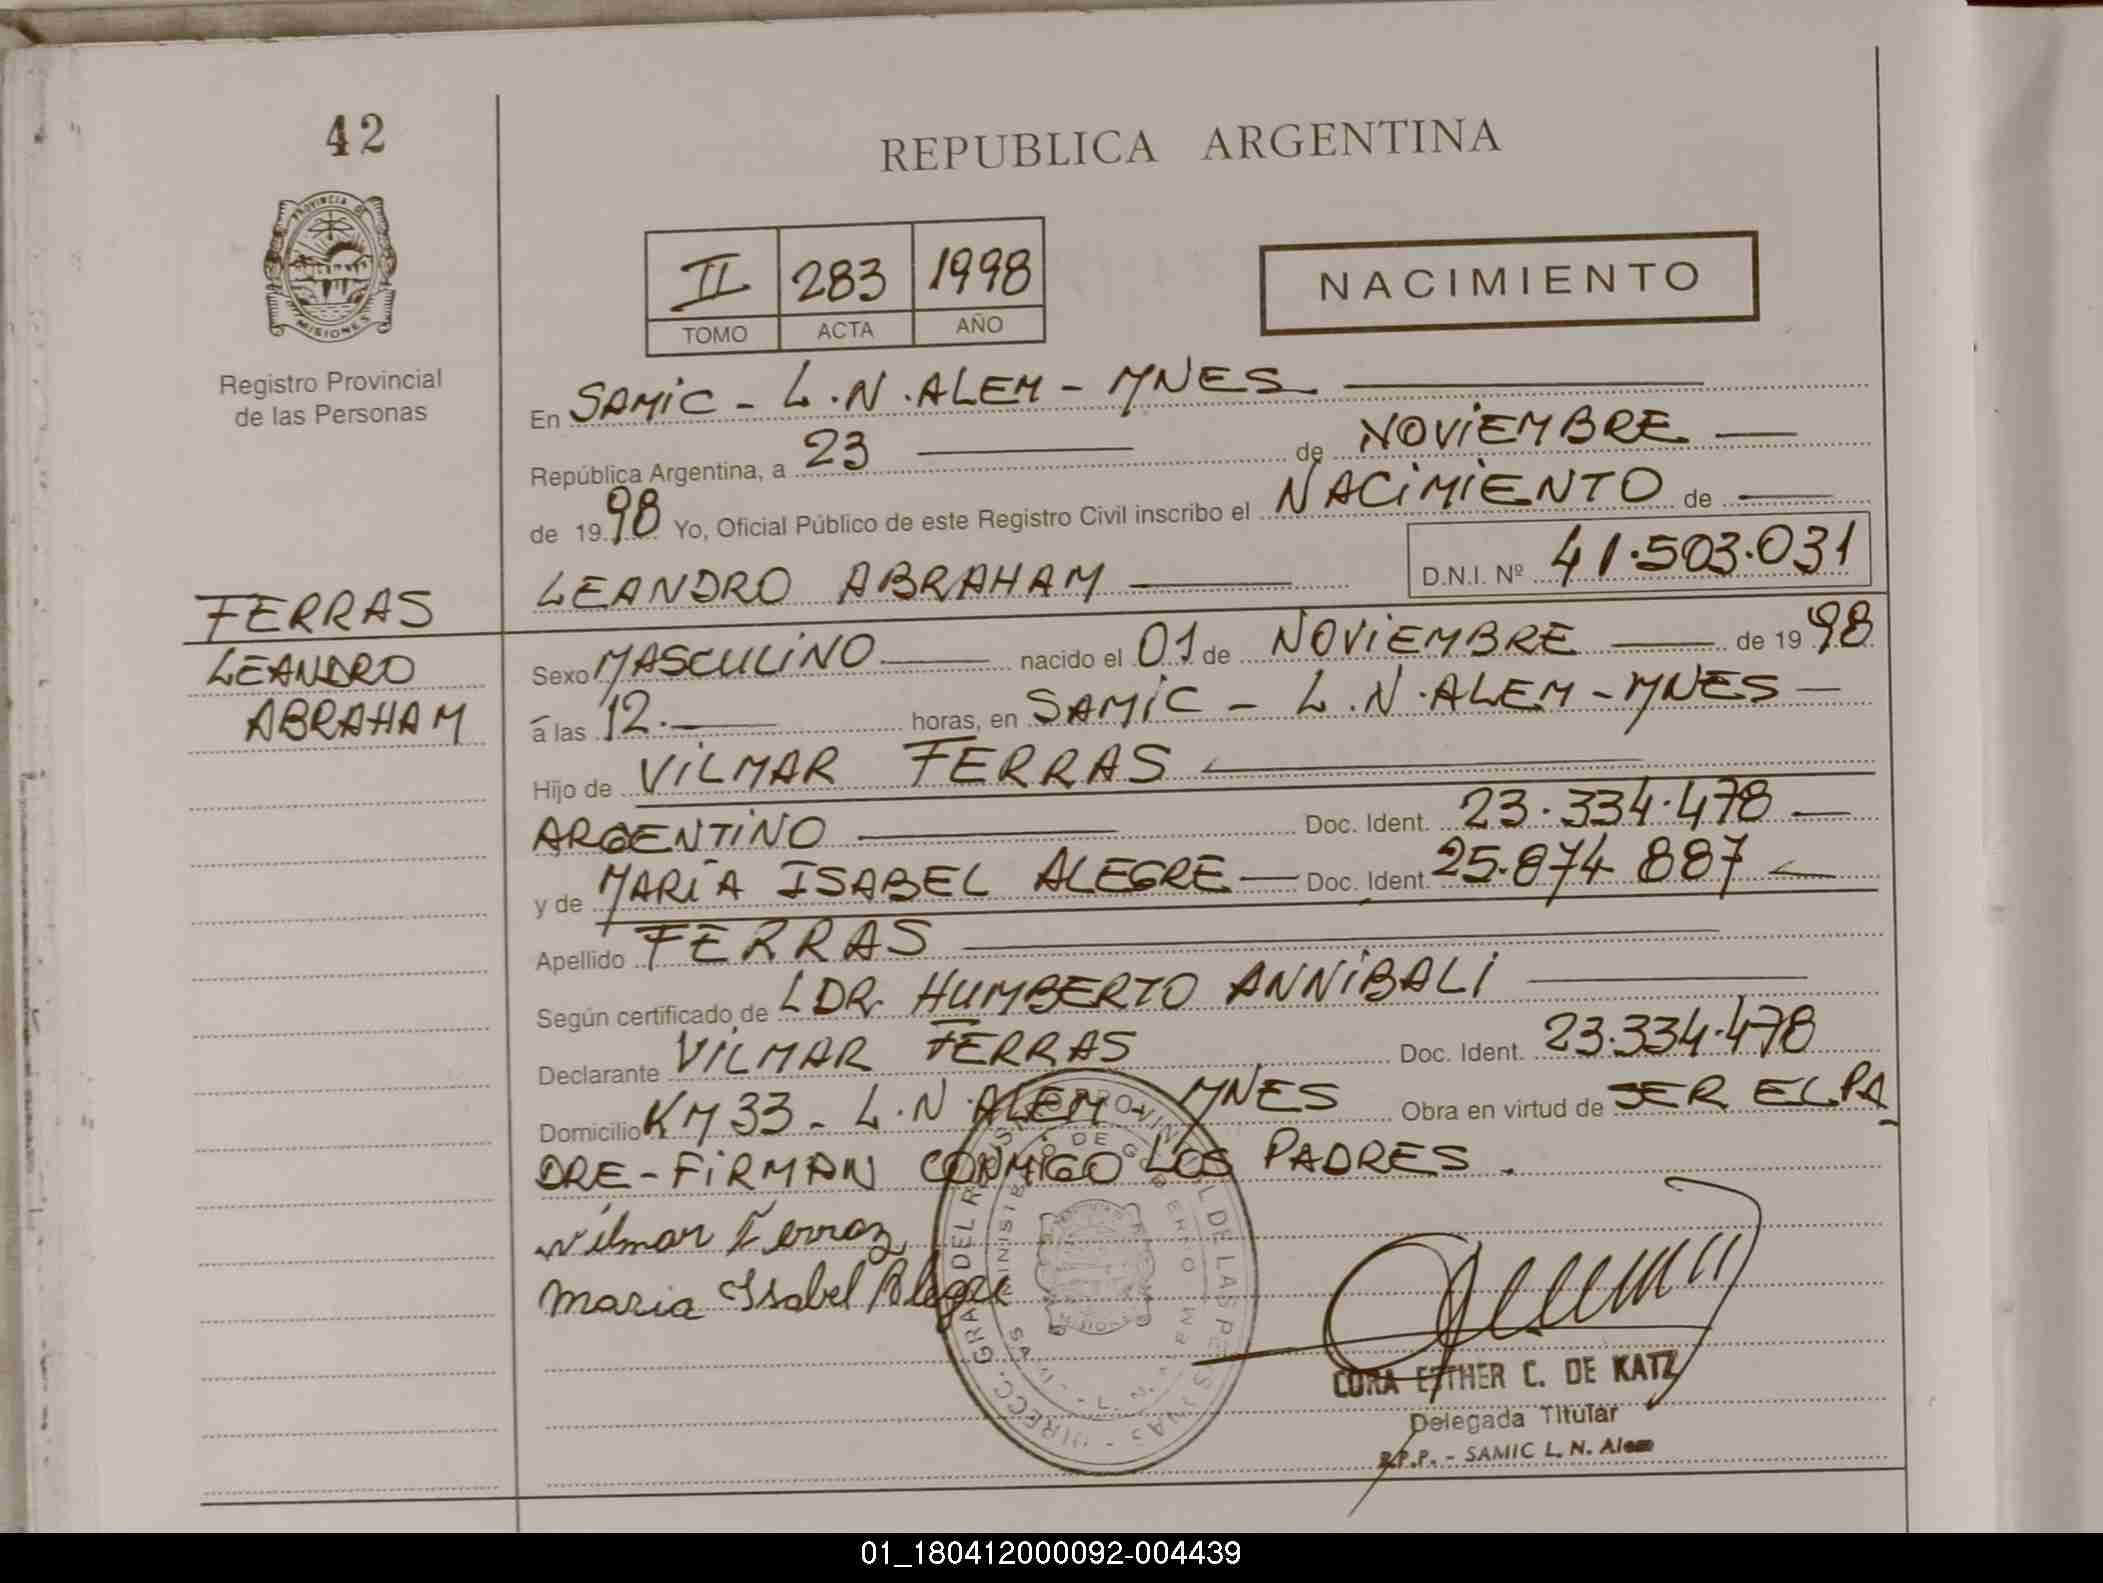 42
REPUBLICA ARGENTINA
PROVINCIA DE
MISIONES
Registro Provincial
de las Personas
II 283 1998
TOMO ACTA AÑO
NACIMIENTO
En SAMIC - L.N. ALEM - MNES
República Argentina, a 23 de NOVIEMBRE
de 1998 Yo, Oficial Público de este Registro Civil inscribo el NACIMIENTO de
LEANDRO ABRAHAM D.N.I. Nº 41.503.031
FERRAS
LEANDRO
ABRAHAM
Sexo MASCULINO nacido el 01 de NOVIEMBRE de 1998
á las 12. horas, en SAMIC - L.N. ALEM - MNES
Hijo de VILMAR FERRAS
ARGENTINO Doc. Ident. 23.334.478
y de MARÍA ISABEL ALEGRE Doc. Ident. 25.874 887
Apellido FERRAS
Según certificado de LDR. HUMBERTO ANNIBALI
Declarante VILMAR FERRAS Doc. Ident. 23.334.478
Domicilio KM 33 - L.N. ALEM - MNES Obra en virtud de SER EL PA
DRE - FIRMAN CONMIGO LOS PADRES.
Vilmar Ferraz
Maria Isabel Alegre
CORA ESTHER C. DE KATZ
Delegada Titular
R.P.P. - SAMIC L. N. Alem
01_180412000092-004439